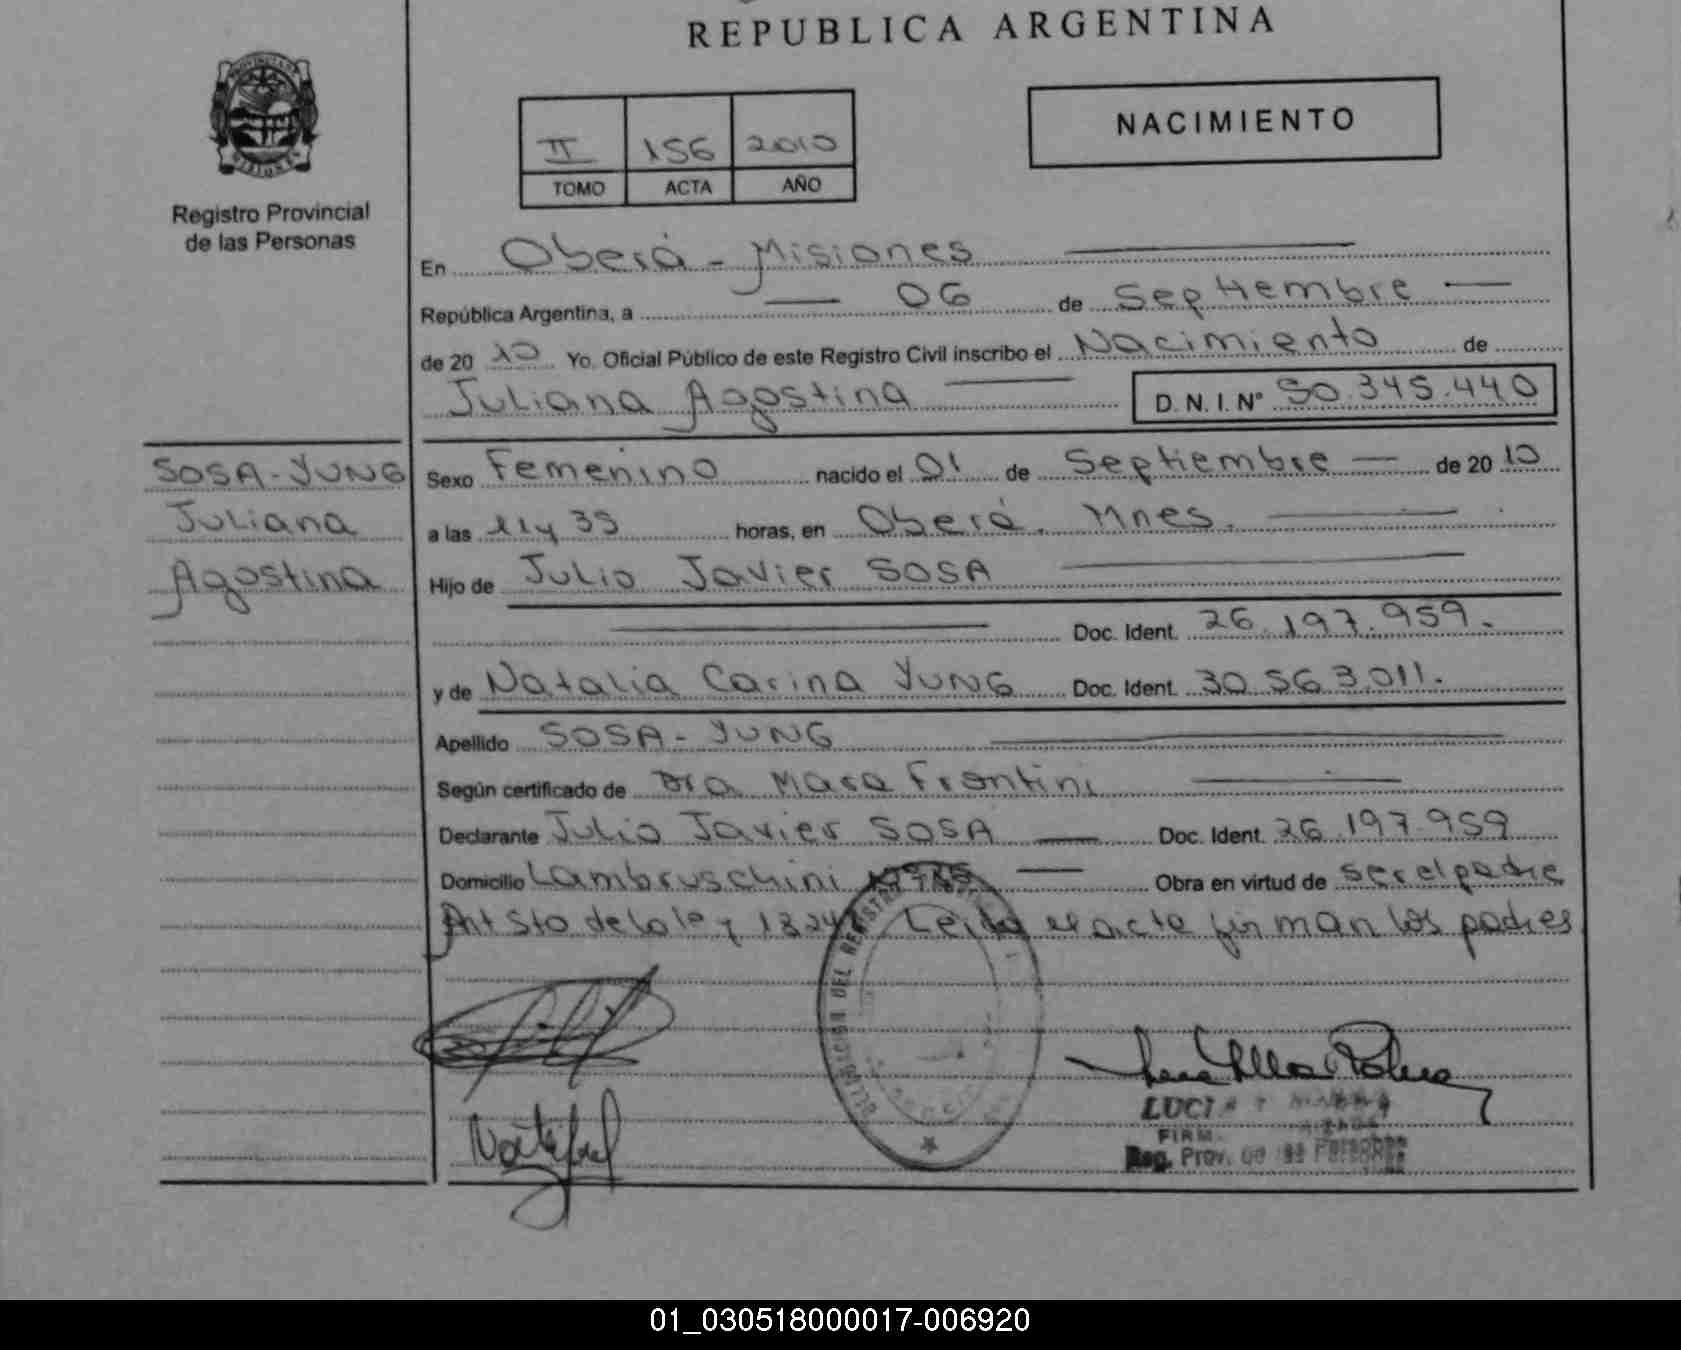 REPUBLICA ARGENTINA
NACIMIENTO
II 156 2010
TOMO ACTA AÑO
Registro Provincial
de las Personas
En Oberá - Misiones
República Argentina, a 06 de Septiembre
de 20 10 Yo. Oficial Público de este Registro Civil inscribo el Nacimiento de
Juliana Agostina D. N. I. N° 50.345.440
SOSA - YUNG
Juliana
Agostina
Sexo Femenino nacido el 01 de Septiembre de 20 10
a las 11 y 35 horas, en Oberá. Mnes.
Hijo de Julio Javier SOSA
Doc. Ident. 26.197.959.
y de Natalia Carina YUNG Doc. Ident. 30.563.011.
Apellido SOSA - YUNG
Según certificado de Dra Mara Frontini
Declarante Julio Javier SOSA Doc. Ident. 26.197.959
Domicilio Lambruschini Obra en virtud de ser el padre
Art 5to de la ley Leída el acta firman los padres
DELEGACION DEL REGISTRO
LUCI
FIRM.
Reg. Prov. de las Personas
01_030518000017-006920